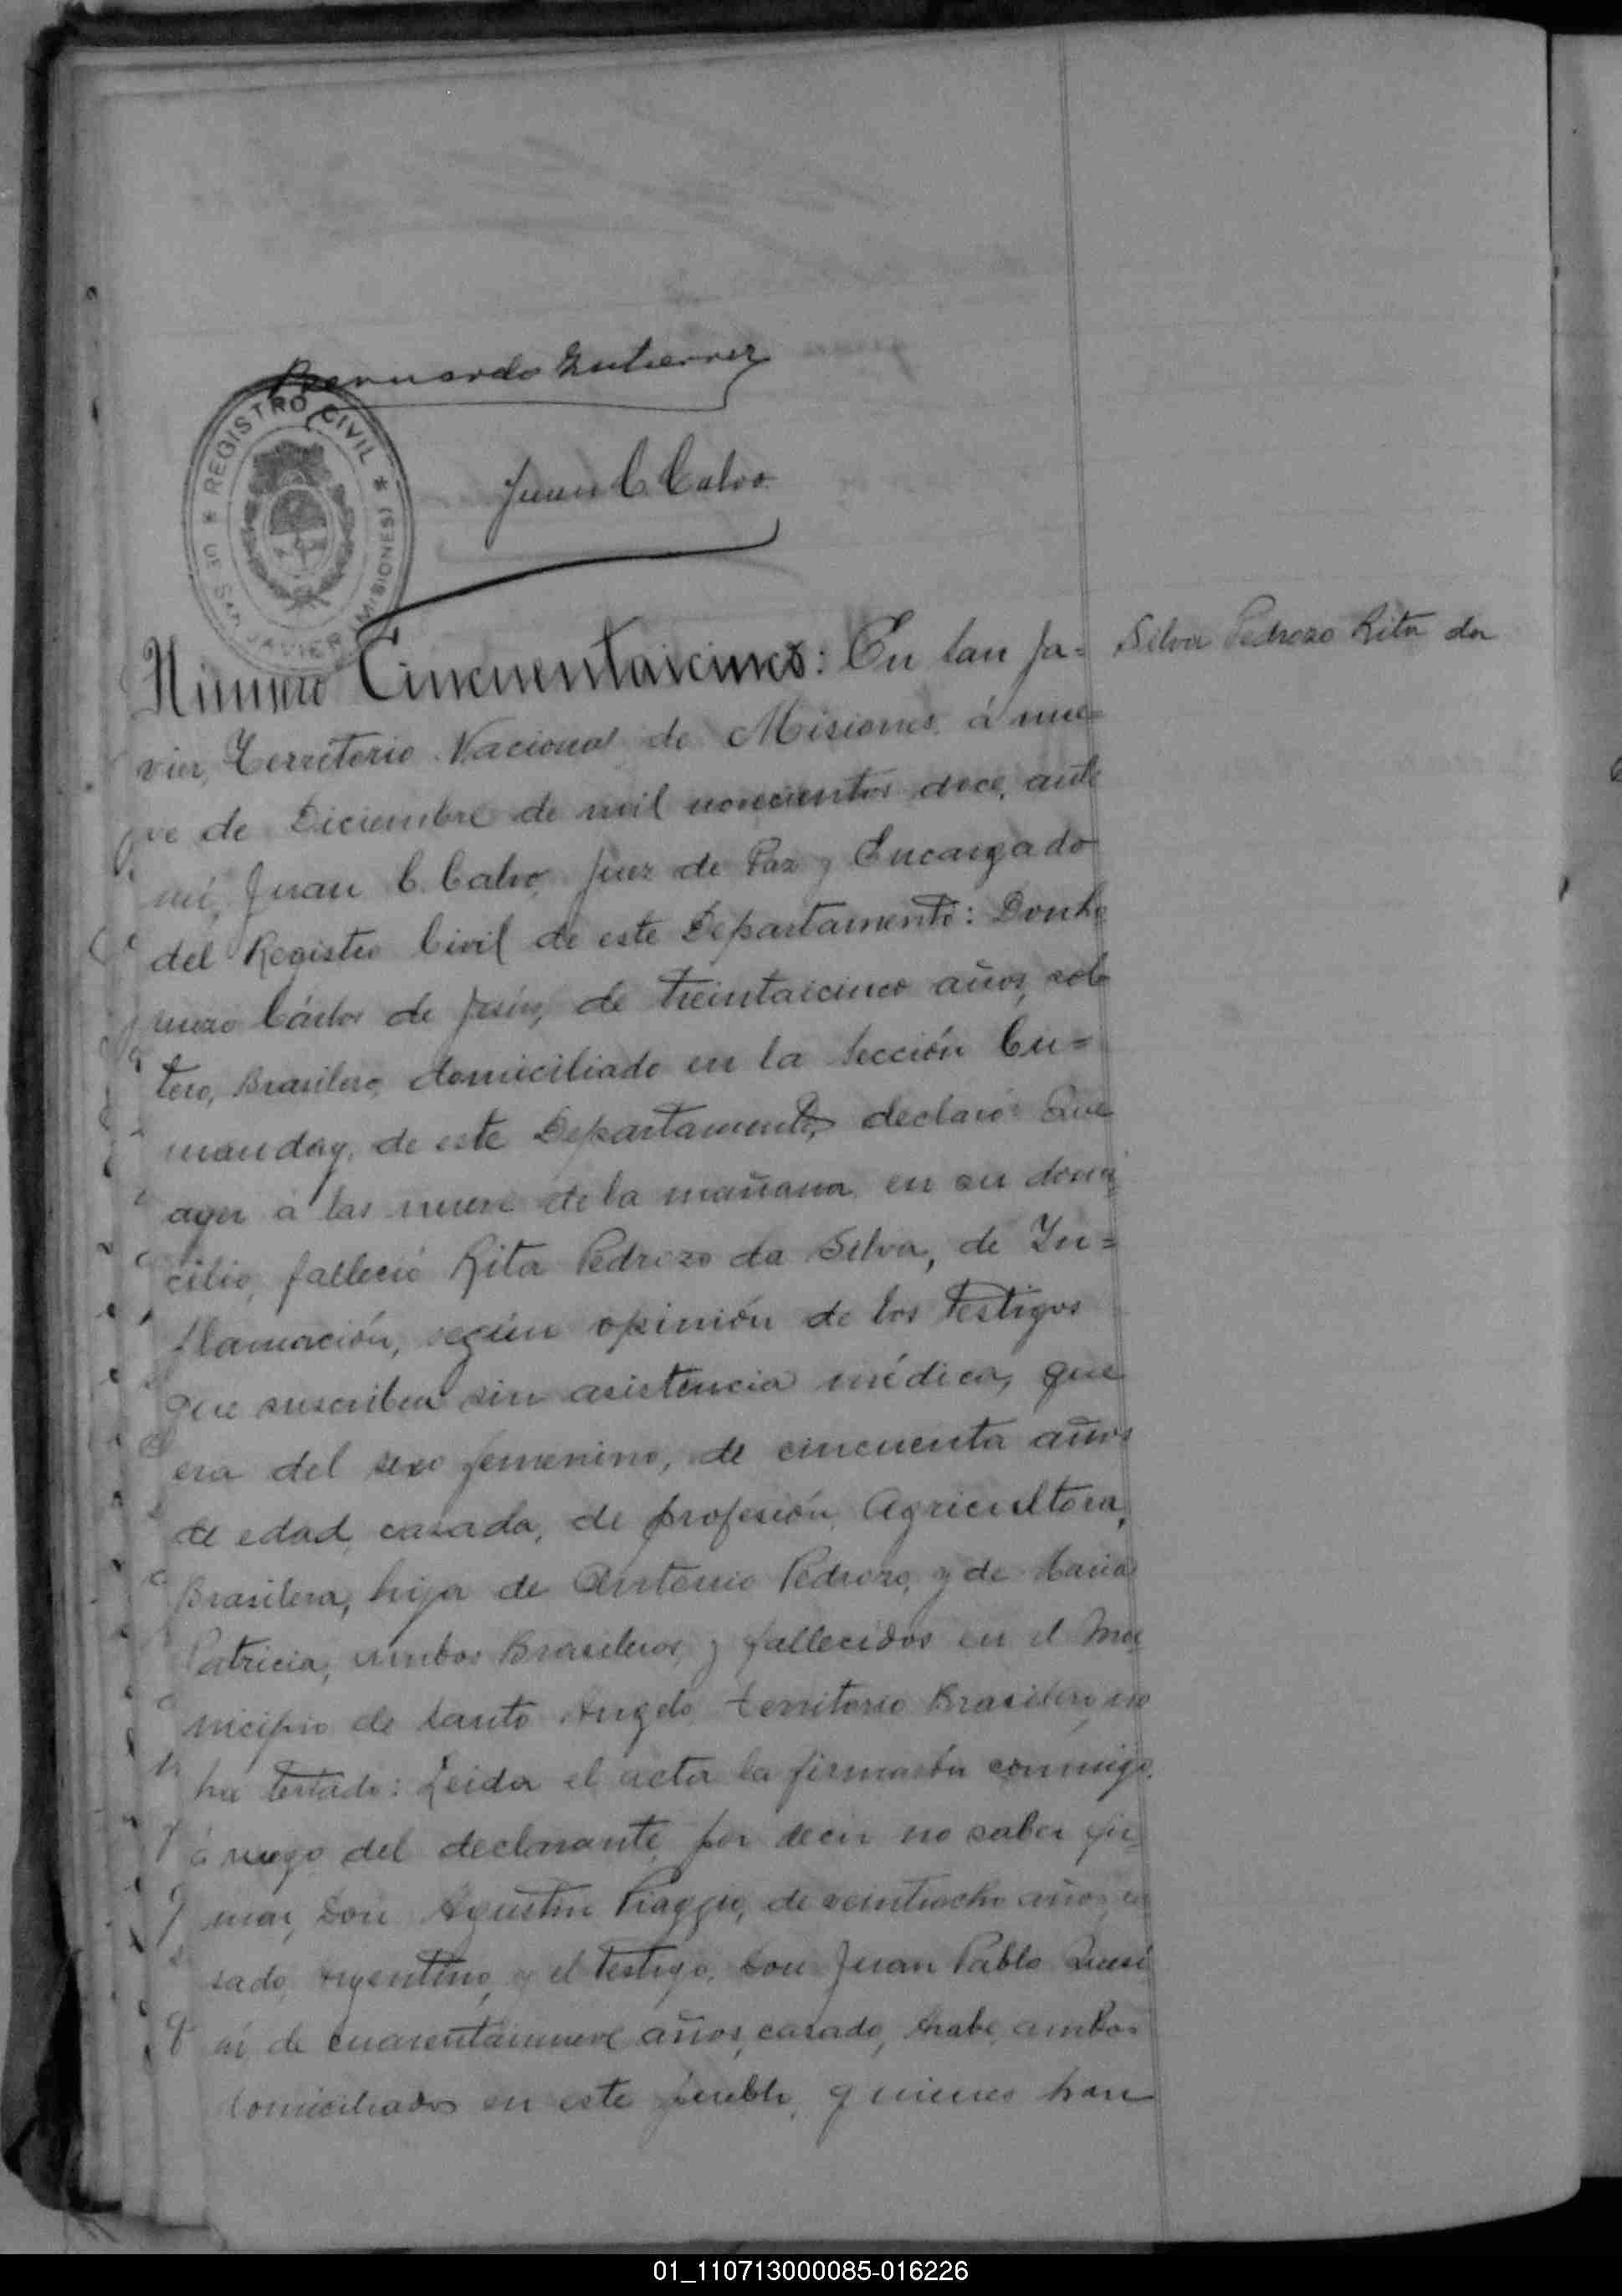 Bernardo Gutierrez
* REGISTRO CIVIL *
DE SAN JAVIER (MISIONES)
Juan C. Calvo
Silva Pedrozo Rita da
Número Cincuentaicinco: En San Ja=
vier, Territorio Nacional de Misiones, á nue=
ve de Diciembre de mil novecientos doce, ante
mí, Juan C. Calvo, Juez de Paz y Encargado
del Registro Civil de este Departamento: Don
Cárlos de Jesús, de treintaicinco años, sol
tero, Brasilero, domiciliado en la Sección Cu=
manday, de este Departamento, declaró: Que
ayer á las nueve de la mañana, en su domi
cilio, falleció Rita Pedrozo da Silva, de In=
flamación, según opinión de los testigos
que suscriben sin asistencia médica, que
era del sexo femenino, de cincuenta años
de edad, casada, de profesión Agricultora,
Brasilera, hija de Antonio Pedrozo, y de Maria
Patricia, ambos Brasileros, y fallecidos en el Mu
nicipio de Santo Angelo, territorio Brasilero, no
ha testado: Leida el acta la firmarón conmigo,
á ruego del declarante, por decir no saber fir
mar, Don Agustin Piaggio, de veintiocho años, ca
sado, Argentino, y el testigo, Don Juan Pablo
de cuarentainueve años, casado, Arabe, ambos
domiciliados en este pueblo, quienes han
01_110713000085-016226